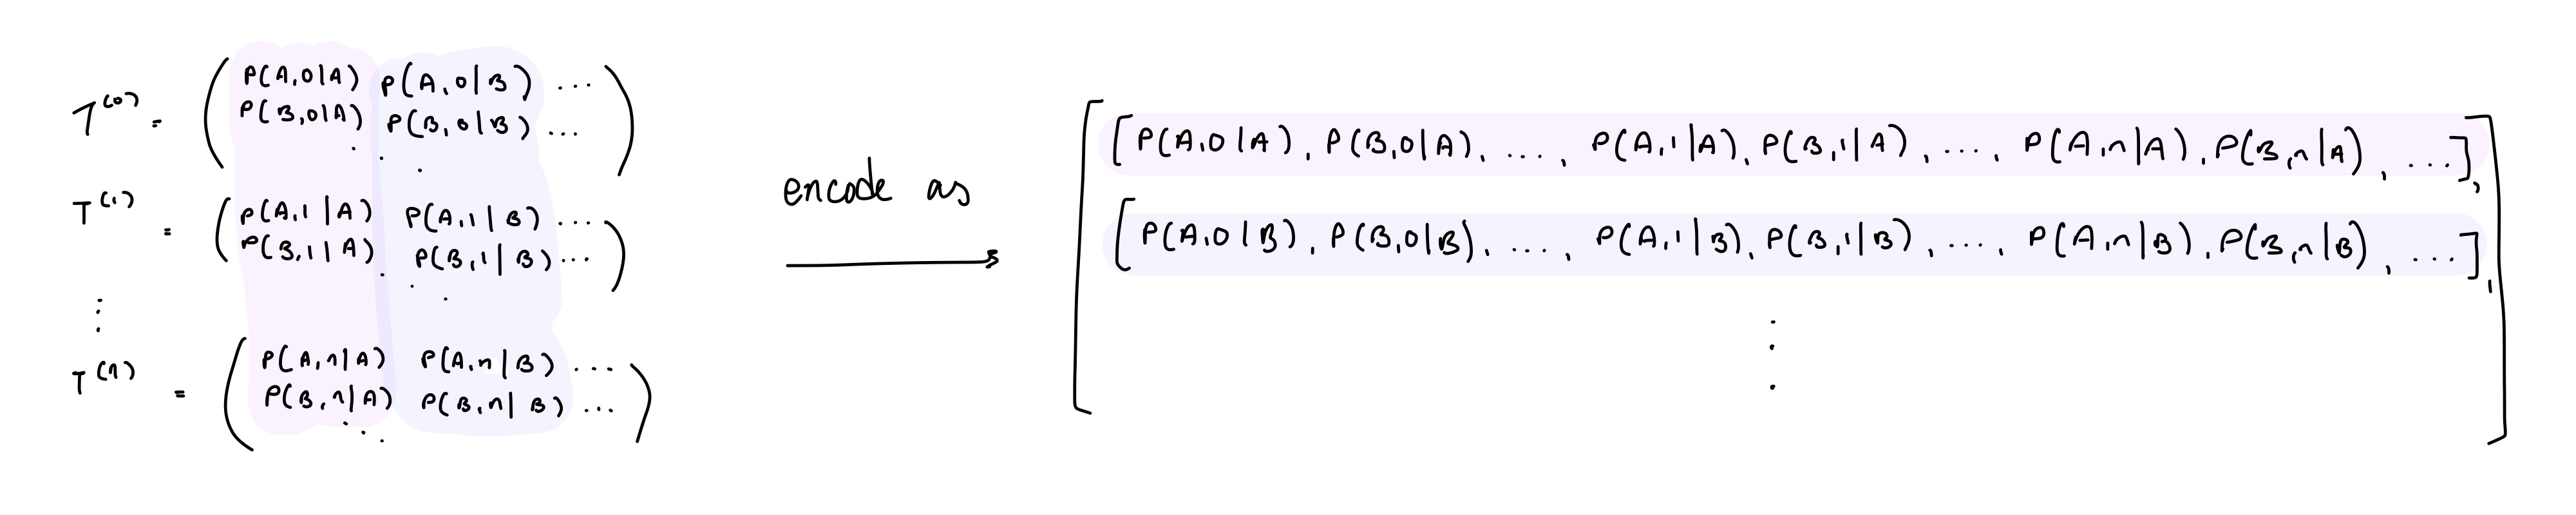 T^(0) = ( P(A,0|A) P(A,0|B) ...
P(B,0|A) P(B,0|B) ... )
T^(1) = ( P(A,1|A) P(A,1|B) ...
P(B,1|A) P(B,1|B) ... )
⋮
T^(n) = ( P(A,n|A) P(A,n|B) ...
P(B,n|A) P(B,n|B) ... )
encode as
[ [P(A,0|A), P(B,0|A), ..., P(A,1|A), P(B,1|A), ..., P(A,n|A), P(B,n|A), ...],
[P(A,0|B), P(B,0|B), ..., P(A,1|B), P(B,1|B), ..., P(A,n|B), P(B,n|B), ...],
⋮ ]